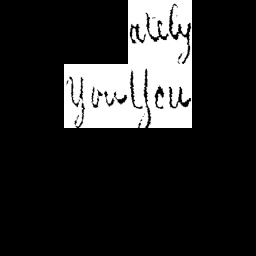 ately
You You